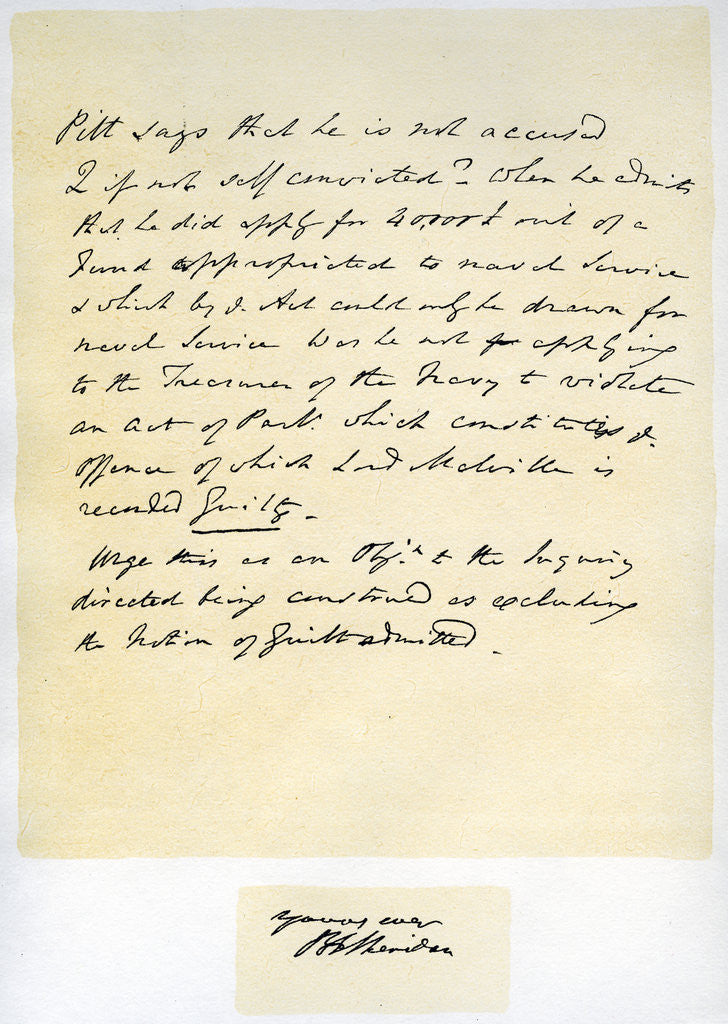 Pitt says that he is not accused
Q if not self convicted? when he admits
that he did apply for 40,000£ out of a
Fund appropriated to naval Service
& which by ye. Act could only be drawn for
naval Service was he not applying
to the Treasurer of the Navy to violate
an act of Parlt. which constitutes ye.
offence of which Lord Melville is
recorded Guilty.
Urge this as an Objn. to the Inquiry
directed being construed as excluding
the Notion of Guilt admitted.
yours ever
RB Sheridan